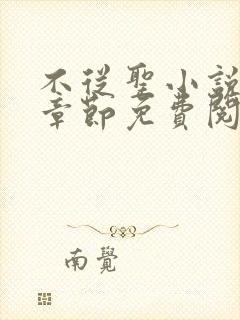 不從聖小說
章節免費閱
南覺